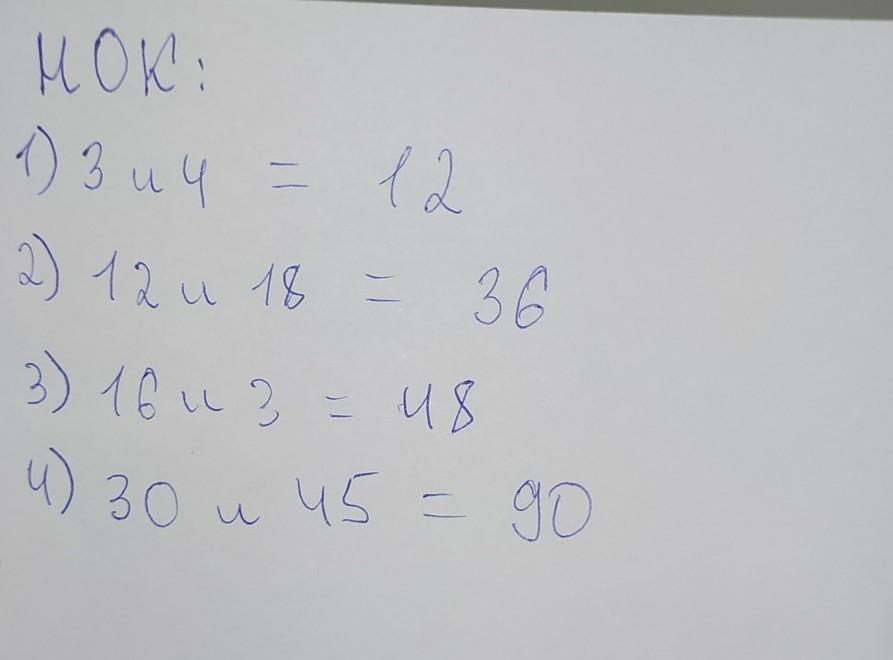 НОК:
1) 3 и 4 = 12
2) 12 и 18 = 36
3) 16 и 3 = 48
4) 30 и 45 = 90